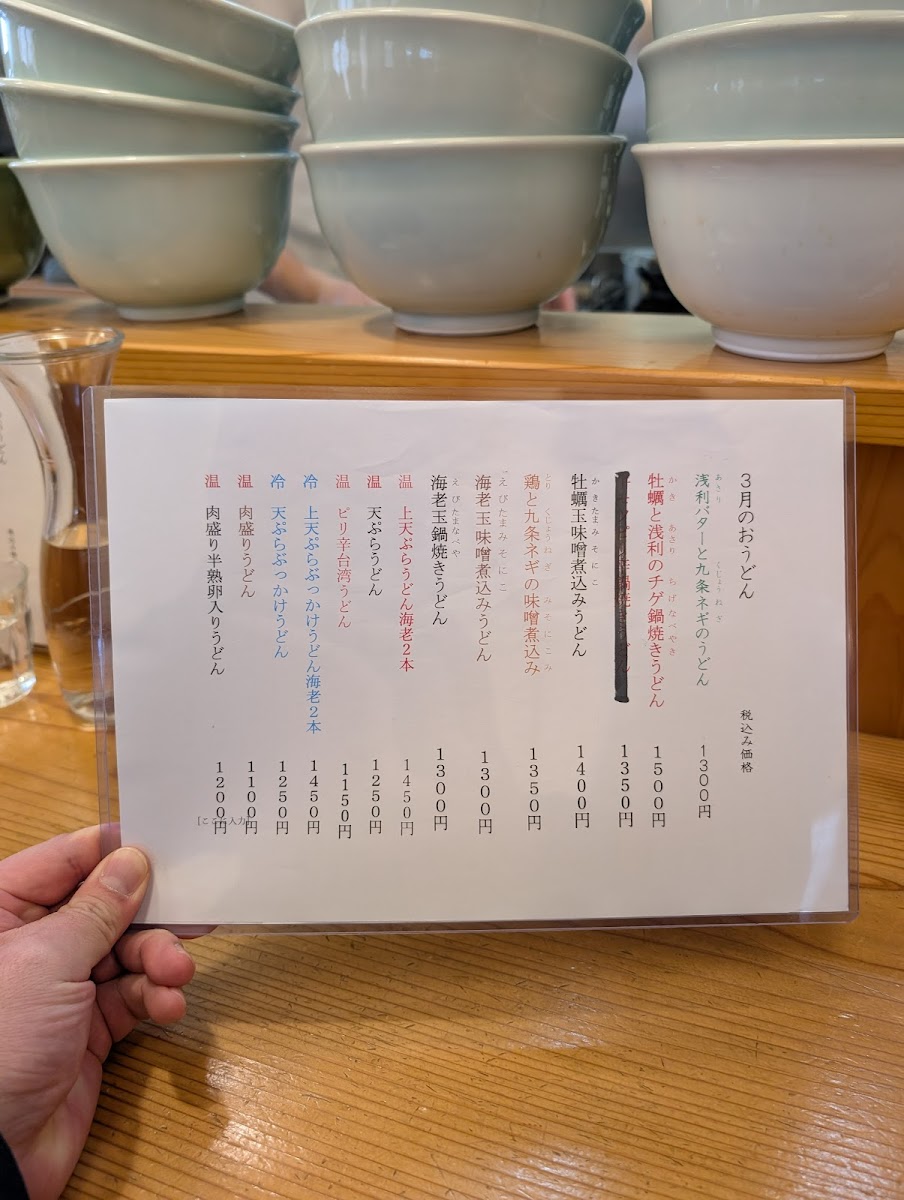 3月のおうどん 税込み価格
浅利バターと九条ネギのうどん 1300円
あさり くじょうねぎ
牡蠣と浅利のチゲ鍋焼きうどん 1500円
かき あさり ちげなべやき
1350円
牡蠣玉味噌煮込みうどん 1400円
かきたまみそにこ
鶏と九条ネギの味噌煮込み 1350円
とり くじょうねぎ みそにこみ
海老玉味噌煮込みうどん 1300円
えびたまみそにこ
海老玉鍋焼きうどん 1300円
えびたまなべや
温 上天ぷらうどん海老2本 1450円
温 天ぷらうどん 1250円
温 ピリ辛台湾うどん 1150円
冷 上天ぷらぶっかけうどん海老2本 1450円
冷 天ぷらぶっかけうどん 1250円
温 肉盛りうどん 1100円
温 肉盛り半熟卵入りうどん 1200円